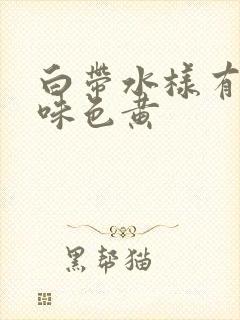 白帶水樣有
味色黄
黑帮猫